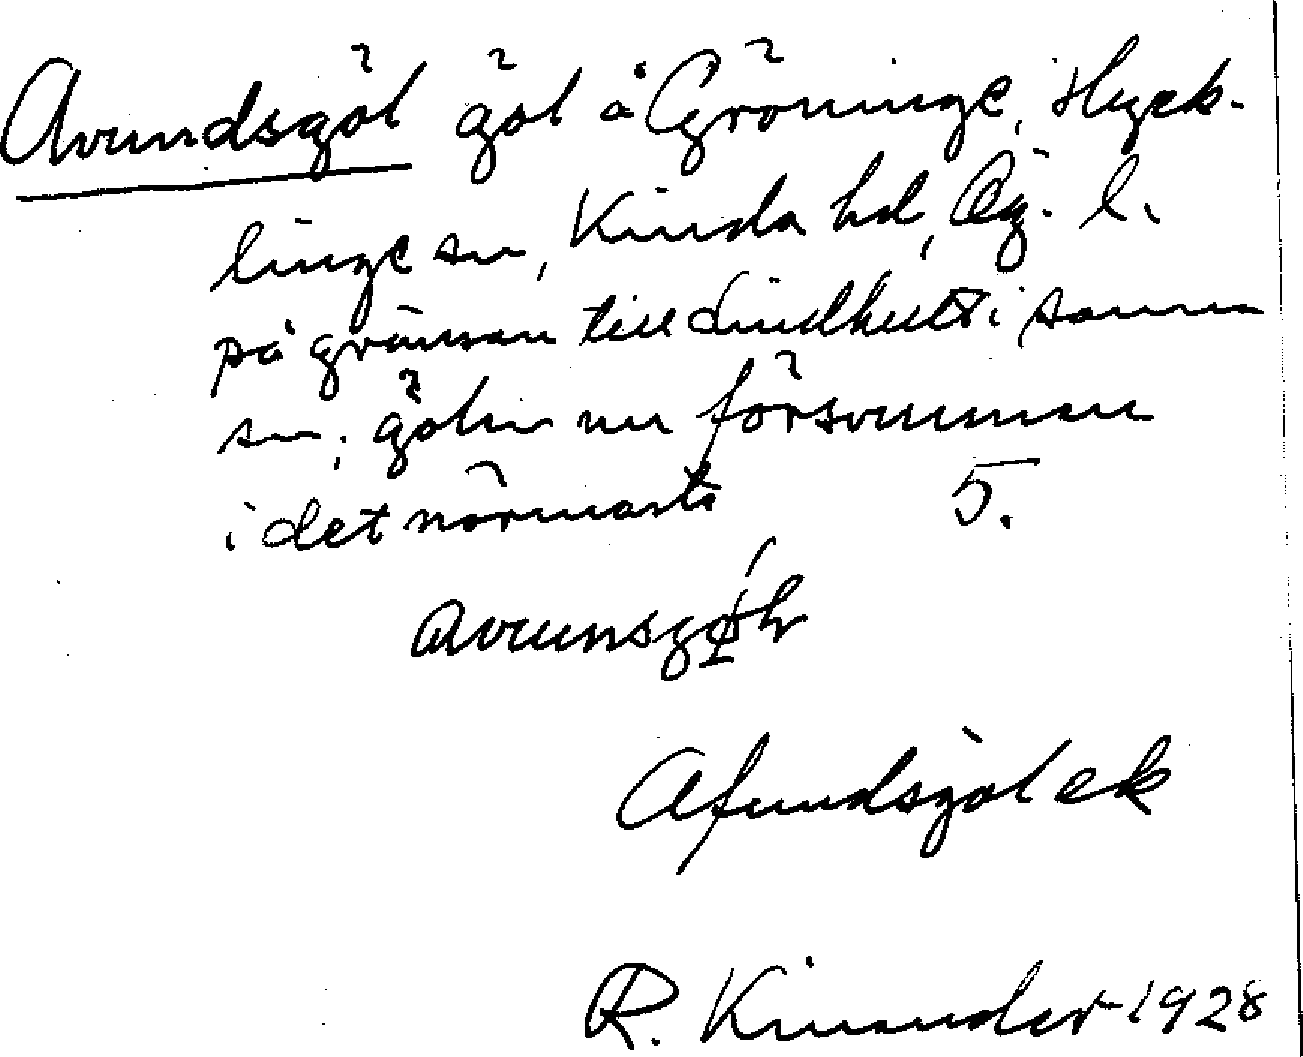 Avundsgöl göl å Gröninge, Hyck-
linge sn, Kinda hd, Ög. l.
på gränsen till Lindhult i samma
sn; gölen nu försvunnen
i det närmaste 5.
Afundsgöl ek
R. Kinander 1928